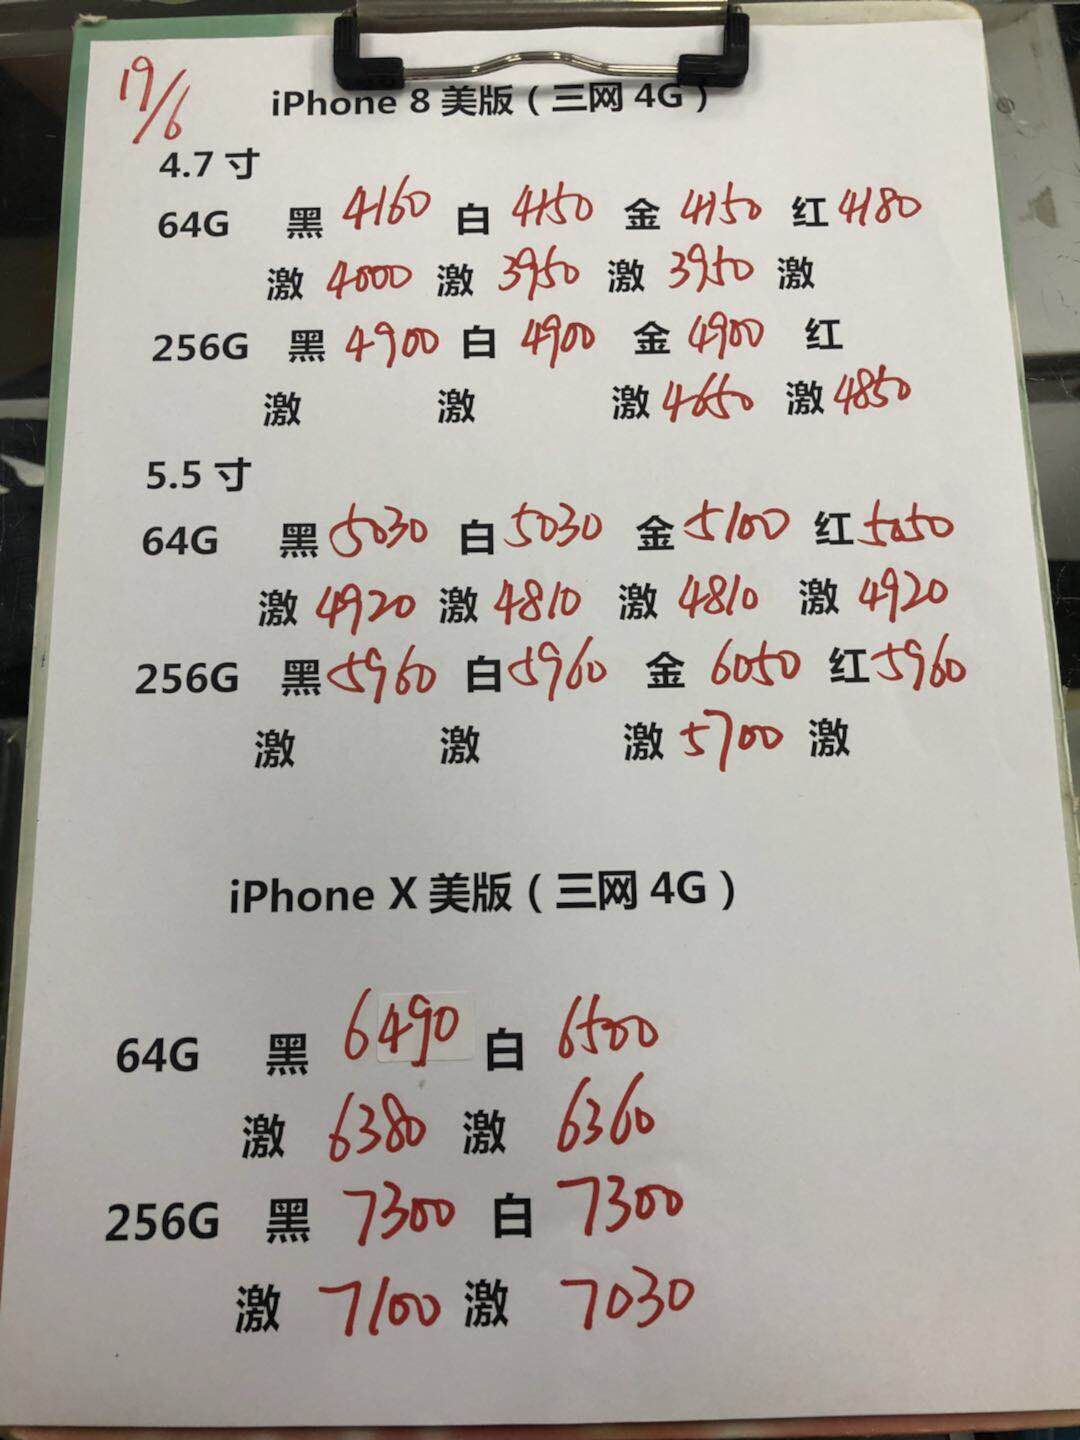 19/6
iPhone 8 美版（三网 4G）
4.7 寸
64G 黑 4160 白 4150 金 4150 红 4180
激 4000 激 3950 激 3950 激
256G 黑 4900 白 4900 金 4900 红
激 激 激 4650 激 4850
5.5 寸
64G 黑 5030 白 5030 金 5100 红 5050
激 4920 激 4810 激 4810 激 4920
256G 黑 5960 白 5960 金 6050 红 5960
激 激 激 5700 激
iPhone X 美版（三网 4G）
64G 黑 6490 白 6500
激 6380 激 6360
256G 黑 7300 白 7300
激 7100 激 7030